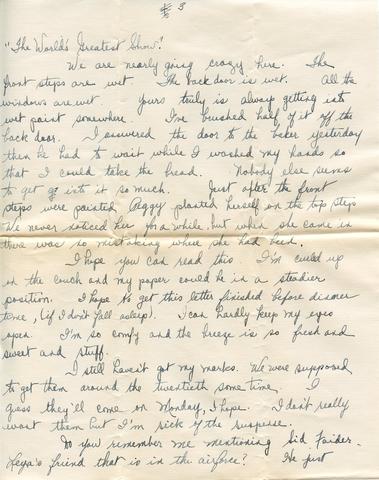 # 3
"The World's Greatest Show."
We are nearly going crazy here. The
front steps are wet The back door is wet. All the
windows are wet. Yours truly is always getting into
wet paint somewhere. I've brushed half of it off the
back door. I answered the door to the baker yesterday
then he had to wait while I washed my hands so
that I could take the bread. Nobody else seems
to get go into it so much. Just after the front
steps were painted Peggy planted herself on the top step
We never noticed her for a while but when she came in
there was no mistaking where she had been.
I hope you can read this. I'm curled up
on the couch and my paper could be in a steadier
position. I hope to get this letter finished before dinner
time, (if I don't fall asleep). I can hardly keep my eyes
open. I'm so comfy and the breeze is so fresh and
sweet and stuff.
I still haven't got my marks. We were supposed
to get them around the twentieth some time. I
guess they'll come on Monday, I hope. I don't really
want them but I'm sick of the suspense.
Do you remember me mentioning Sid
friend that is in the airforce? He just